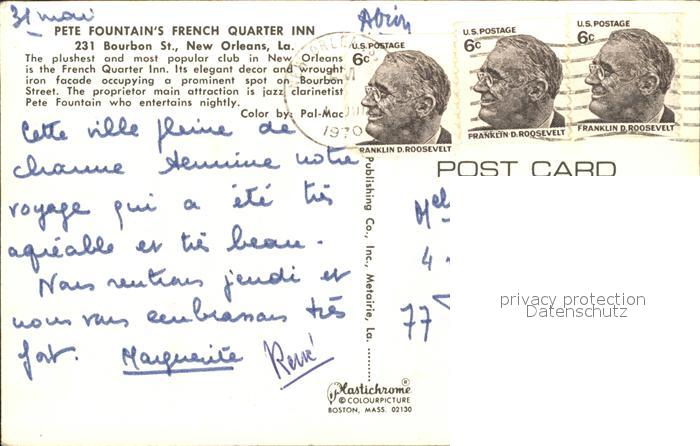 31 mai
Avion
PETE FOUNTAIN'S FRENCH QUARTER INN
231 Bourbon St., New Orleans, La.
The plushest and most popular club in New Orleans
is the French Quarter Inn. Its elegant decor and wrought
iron facade occupying a prominent spot on Bourbon
Street. The proprietor main attraction is jazz clarinetist
Pete Fountain who entertains nightly.
Color by: Pal-Mac
U.S. POSTAGE
6c
FRANKLIN D. ROOSEVELT
U.S. POSTAGE
6c
FRANKLIN D. ROOSEVELT
U.S. POSTAGE
6c
FRANKLIN D. ROOSEVELT
1970
POST CARD
Cette ville pleine de
charme termine notre
voyage qui a été très
agréable et très beau.
Nous rentrons jeudi et
nous vous embrassons très
fort. Marguerite René
Publishing Co., Inc., Metairie, La.
4
77
privacy protection
Datenschutz
Plastichrome®
© COLOURPICTURE
BOSTON, MASS. 02130